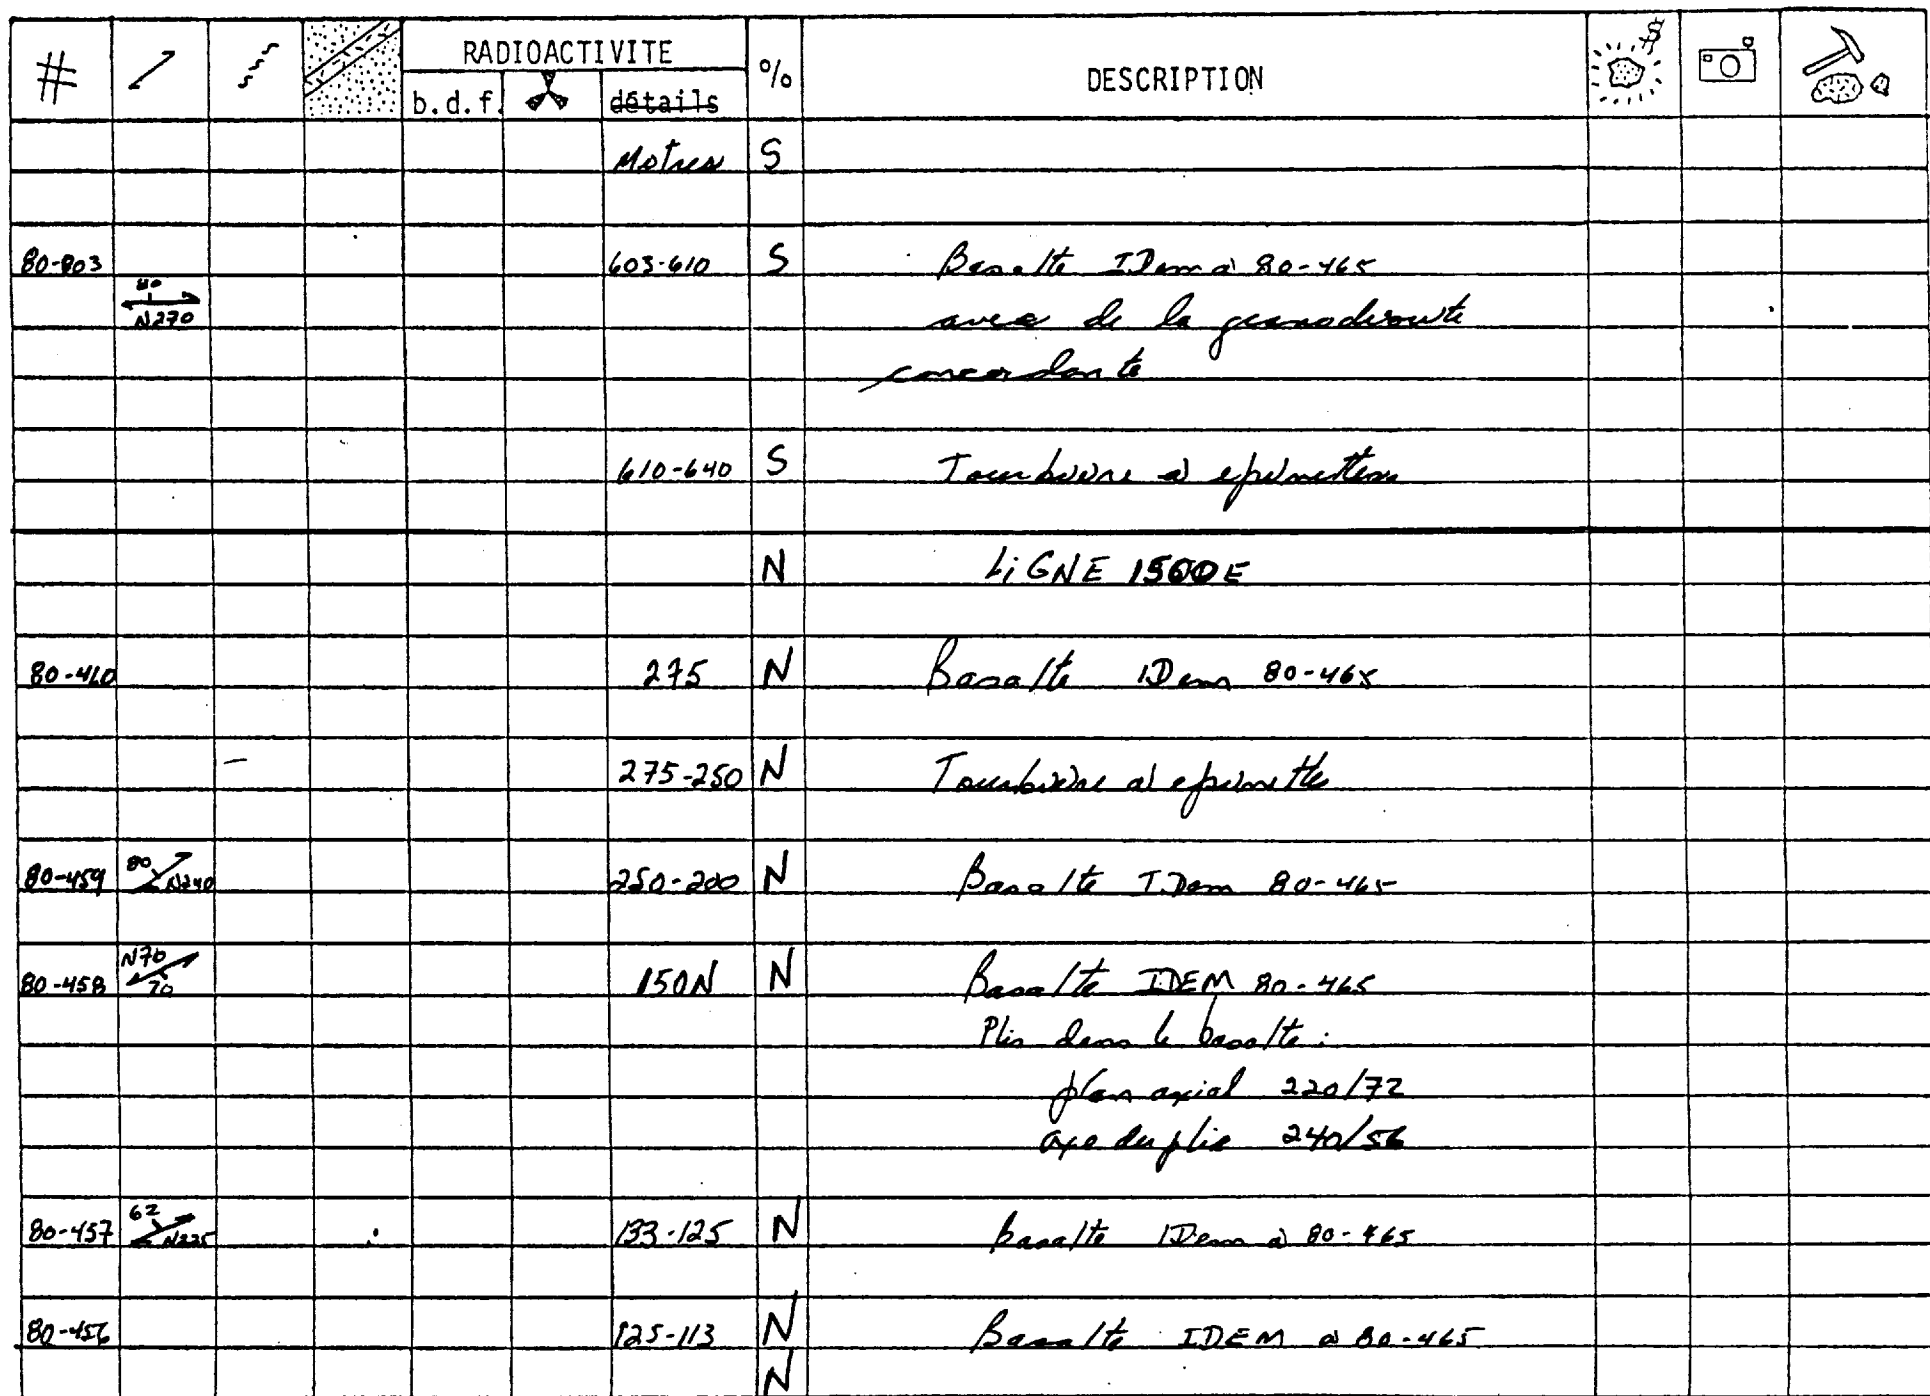 # RADIOACTIVITE % DESCRIPTION $
b.d.f. détails
Mètres S
80-803 603-610 S Basalte IDem à 80-465
80 N270 avec de la granodiorite
concordante
610-640 S Tourbière à epinettes
N LiGNE 1500E
80-460 275 N Basalte IDem 80-465
275-250 N Tourbière à epinettes
80-459 80 N240 250-200 N Basalte IDem 80-465
80-458 N70 70 150N N Basalte IDEM 80-465
Plis dans le basalte :
plan axial 220/72
axe du plis 240/56
80-457 62 N225 133-125 N basalte IDem à 80-465
80-456 125-113 N Basalte IDEM à 80-465
N